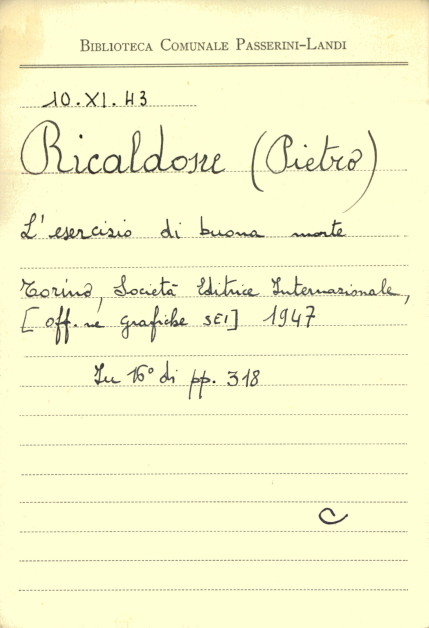 BIBLIOTECA COMUNALE PASSERINI-LANDI
10.XI.43
Ricaldone (Pietro)
L'esercizio di buona morte
Torino, Società Editrice Internazionale,
[off.ne grafiche SEI] 1947
In 16° di pp. 318
C